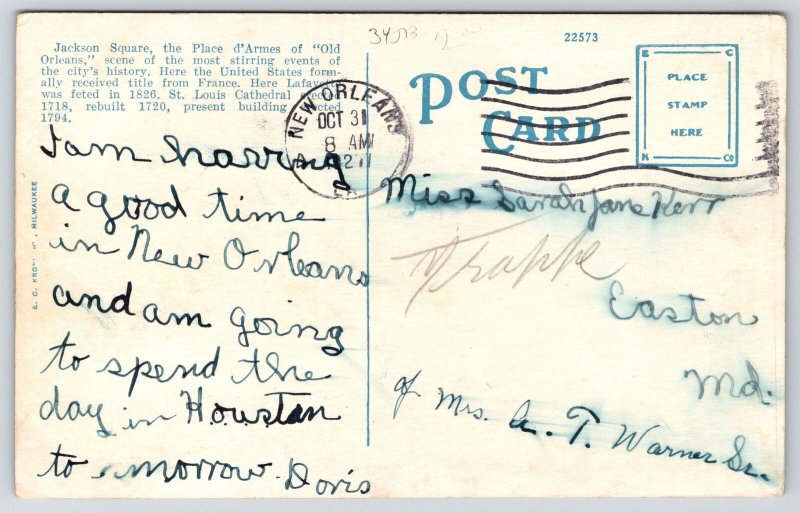 Jackson Square, the Place d'Armes of "Old
Orleans," scene of the most stirring events of
the city's history. Here the United States form-
ally received title from France. Here Lafayette
was feted in 1826. St. Louis Cathedral erected
1718, rebuilt 1720, present building erected
1794.
I am having
a good time
in New Orleans
and am going
to spend the
day in Houstan
to morrow. Doris
E. C. MILWAUKEE
NEW ORLEANS
OCT 31
8 AM
22573
POST
CARD
E C
PLACE
STAMP
HERE
K Co
Miss Sarah Jane Kerr
Trappe
Easton
Md.
of Mrs. A. T. Warner Sr.